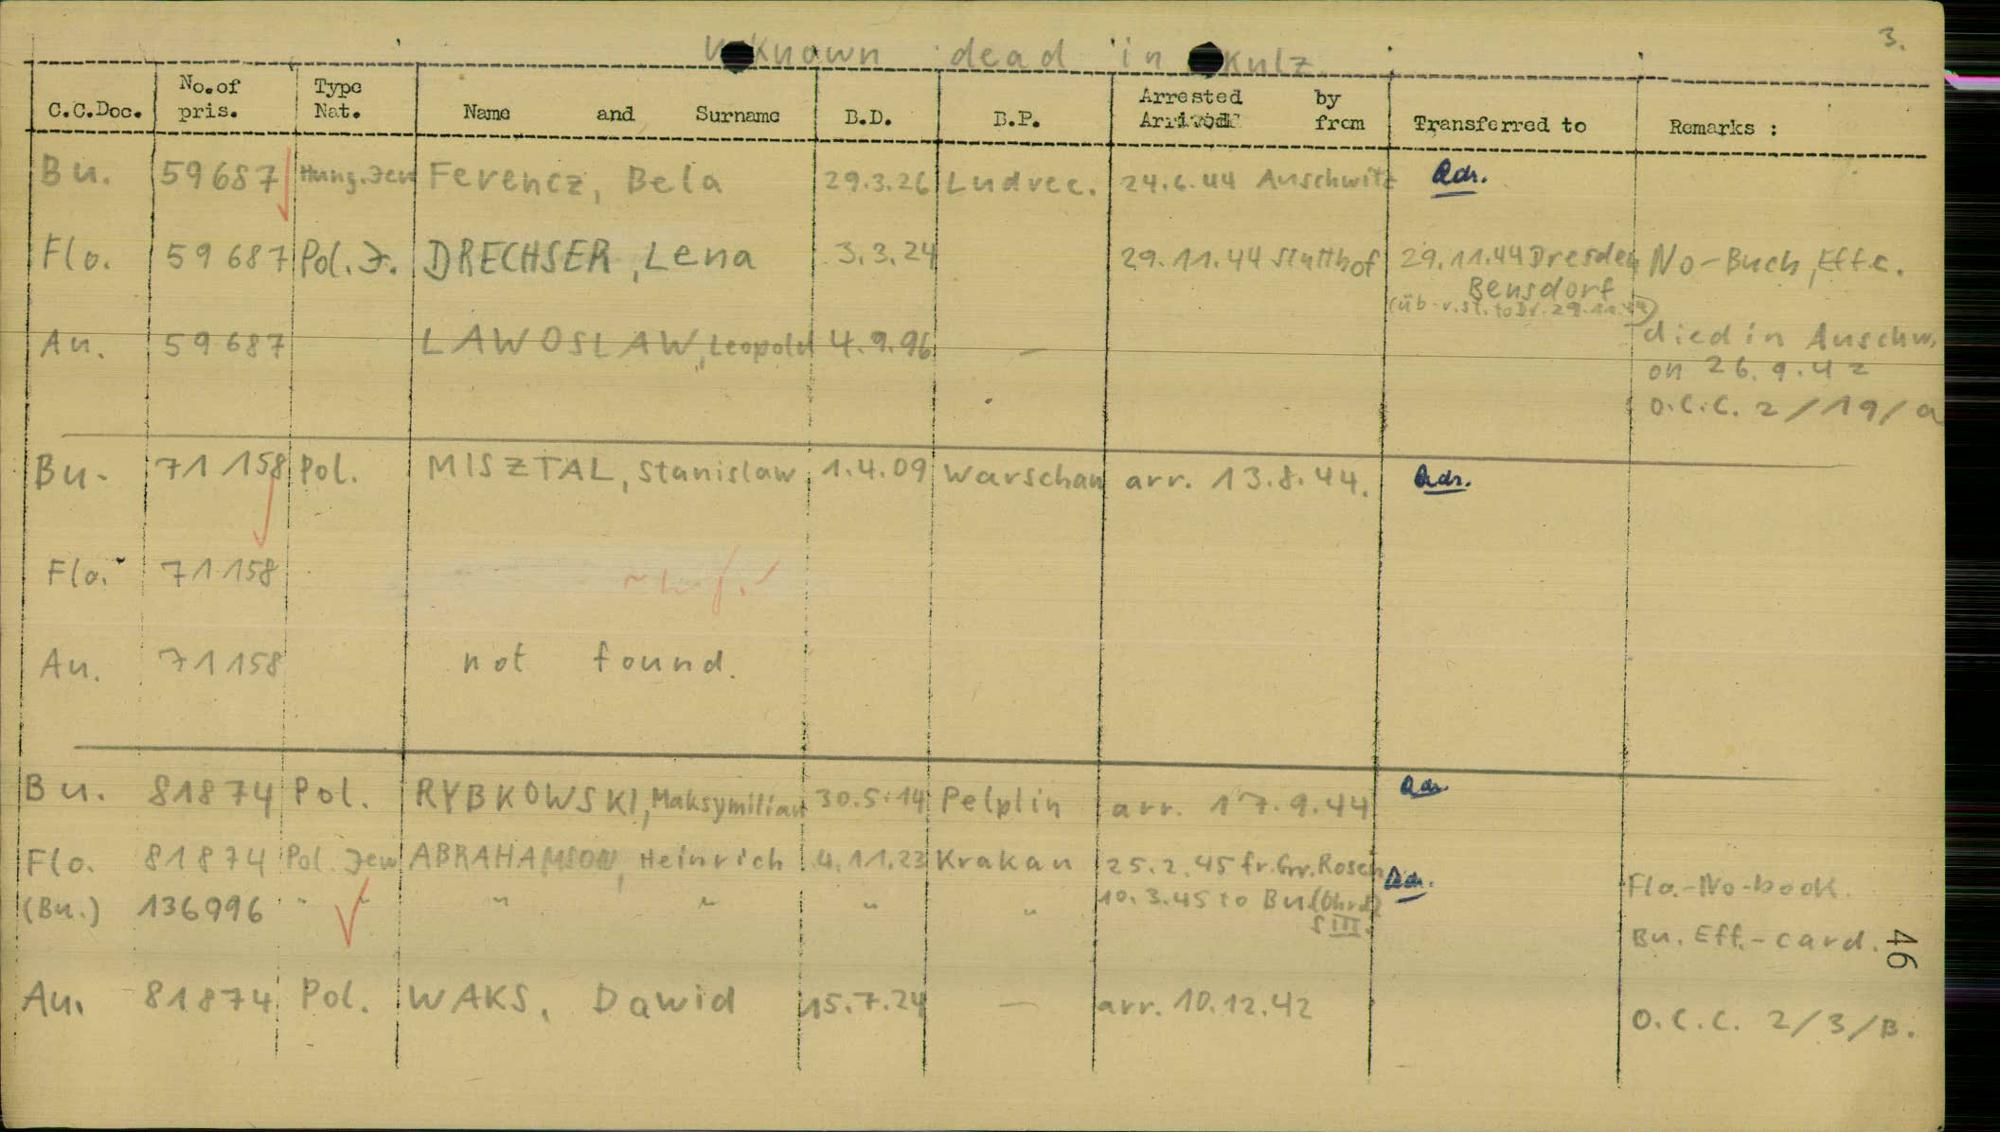 Unknown dead in Kulz
3.
C.C.Doc. No.of pris. Type Nat. Name and Surname B.D. B.P. Arrested by Arrived from Transferred to Remarks :
Bu. 59687 Hung.Jew Ferencz, Bela 29.3.26 Ludvec. 24.6.44 Auschwitz Adr.
Flo. 59687 Pol. J. DRECHSER, Lena 3.3.24 29.11.44 Stutthof 29.11.44 Dresden No-Buch, Eff.c.
Bensdorf
(üb.v.st. to Dr. 29.11.44)
Au. 59687 LAWOSLAW, Leopold 4.9.96 — died in Auschw.
on 26.9.42
O.C.C. 2/19/a
Bu. 71158 Pol. MISZTAL, Stanislaw 1.4.09 Warschau arr. 13.8.44. Adr.
Flo. 71158
Au. 71158 not found.
Bu. 81874 Pol. RYBKOWSKI, Maksymilian 30.5.14 Pelplin arr. 17.9.44 Adr.
Flo. 81874 Pol. Jew ABRAHAMSON, Heinrich 4.11.23 Krakau 25.2.45 fr. Gr. Rosen Adr. Flo.-No-book.
(Bu.) 136996 " " " " " " 10.3.45 to Bu. (Ohrd) Bu. Eff.-card.
S III.
46
Au. 81874 Pol. WAKS, Dawid 15.7.24 — arr. 10.12.42 O.C.C. 2/3/B.